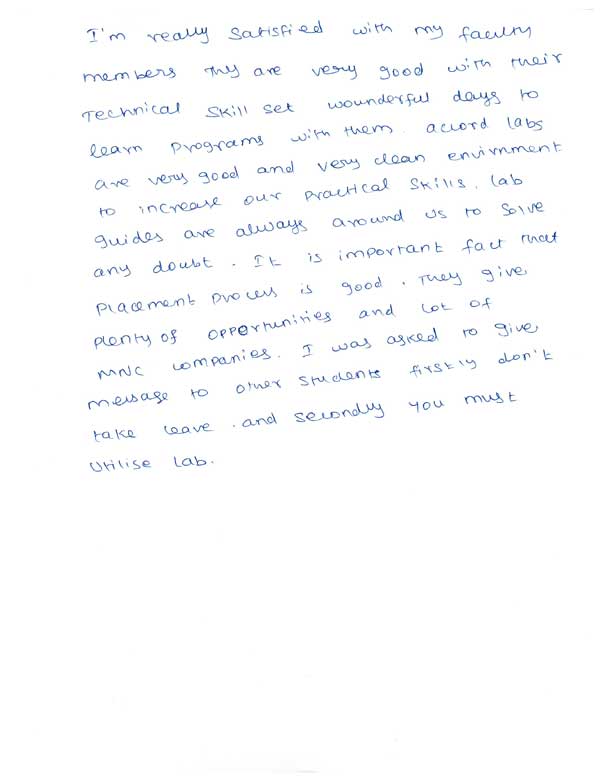 I'm really satisfied with my faculty
members thy are very good with their
Technical skill set wounderful days to
learn programs with them. accord labs
are very good and very clean envirnment
to increase our practical skills. lab
guides are always around us to solve
any doubt. It is important fact that
placement process is good. They give
plenty of oppertunities and lot of
MNC companies. I was asked to give
message to other students firstly don't
take leave. and secondly you must
utilise lab.